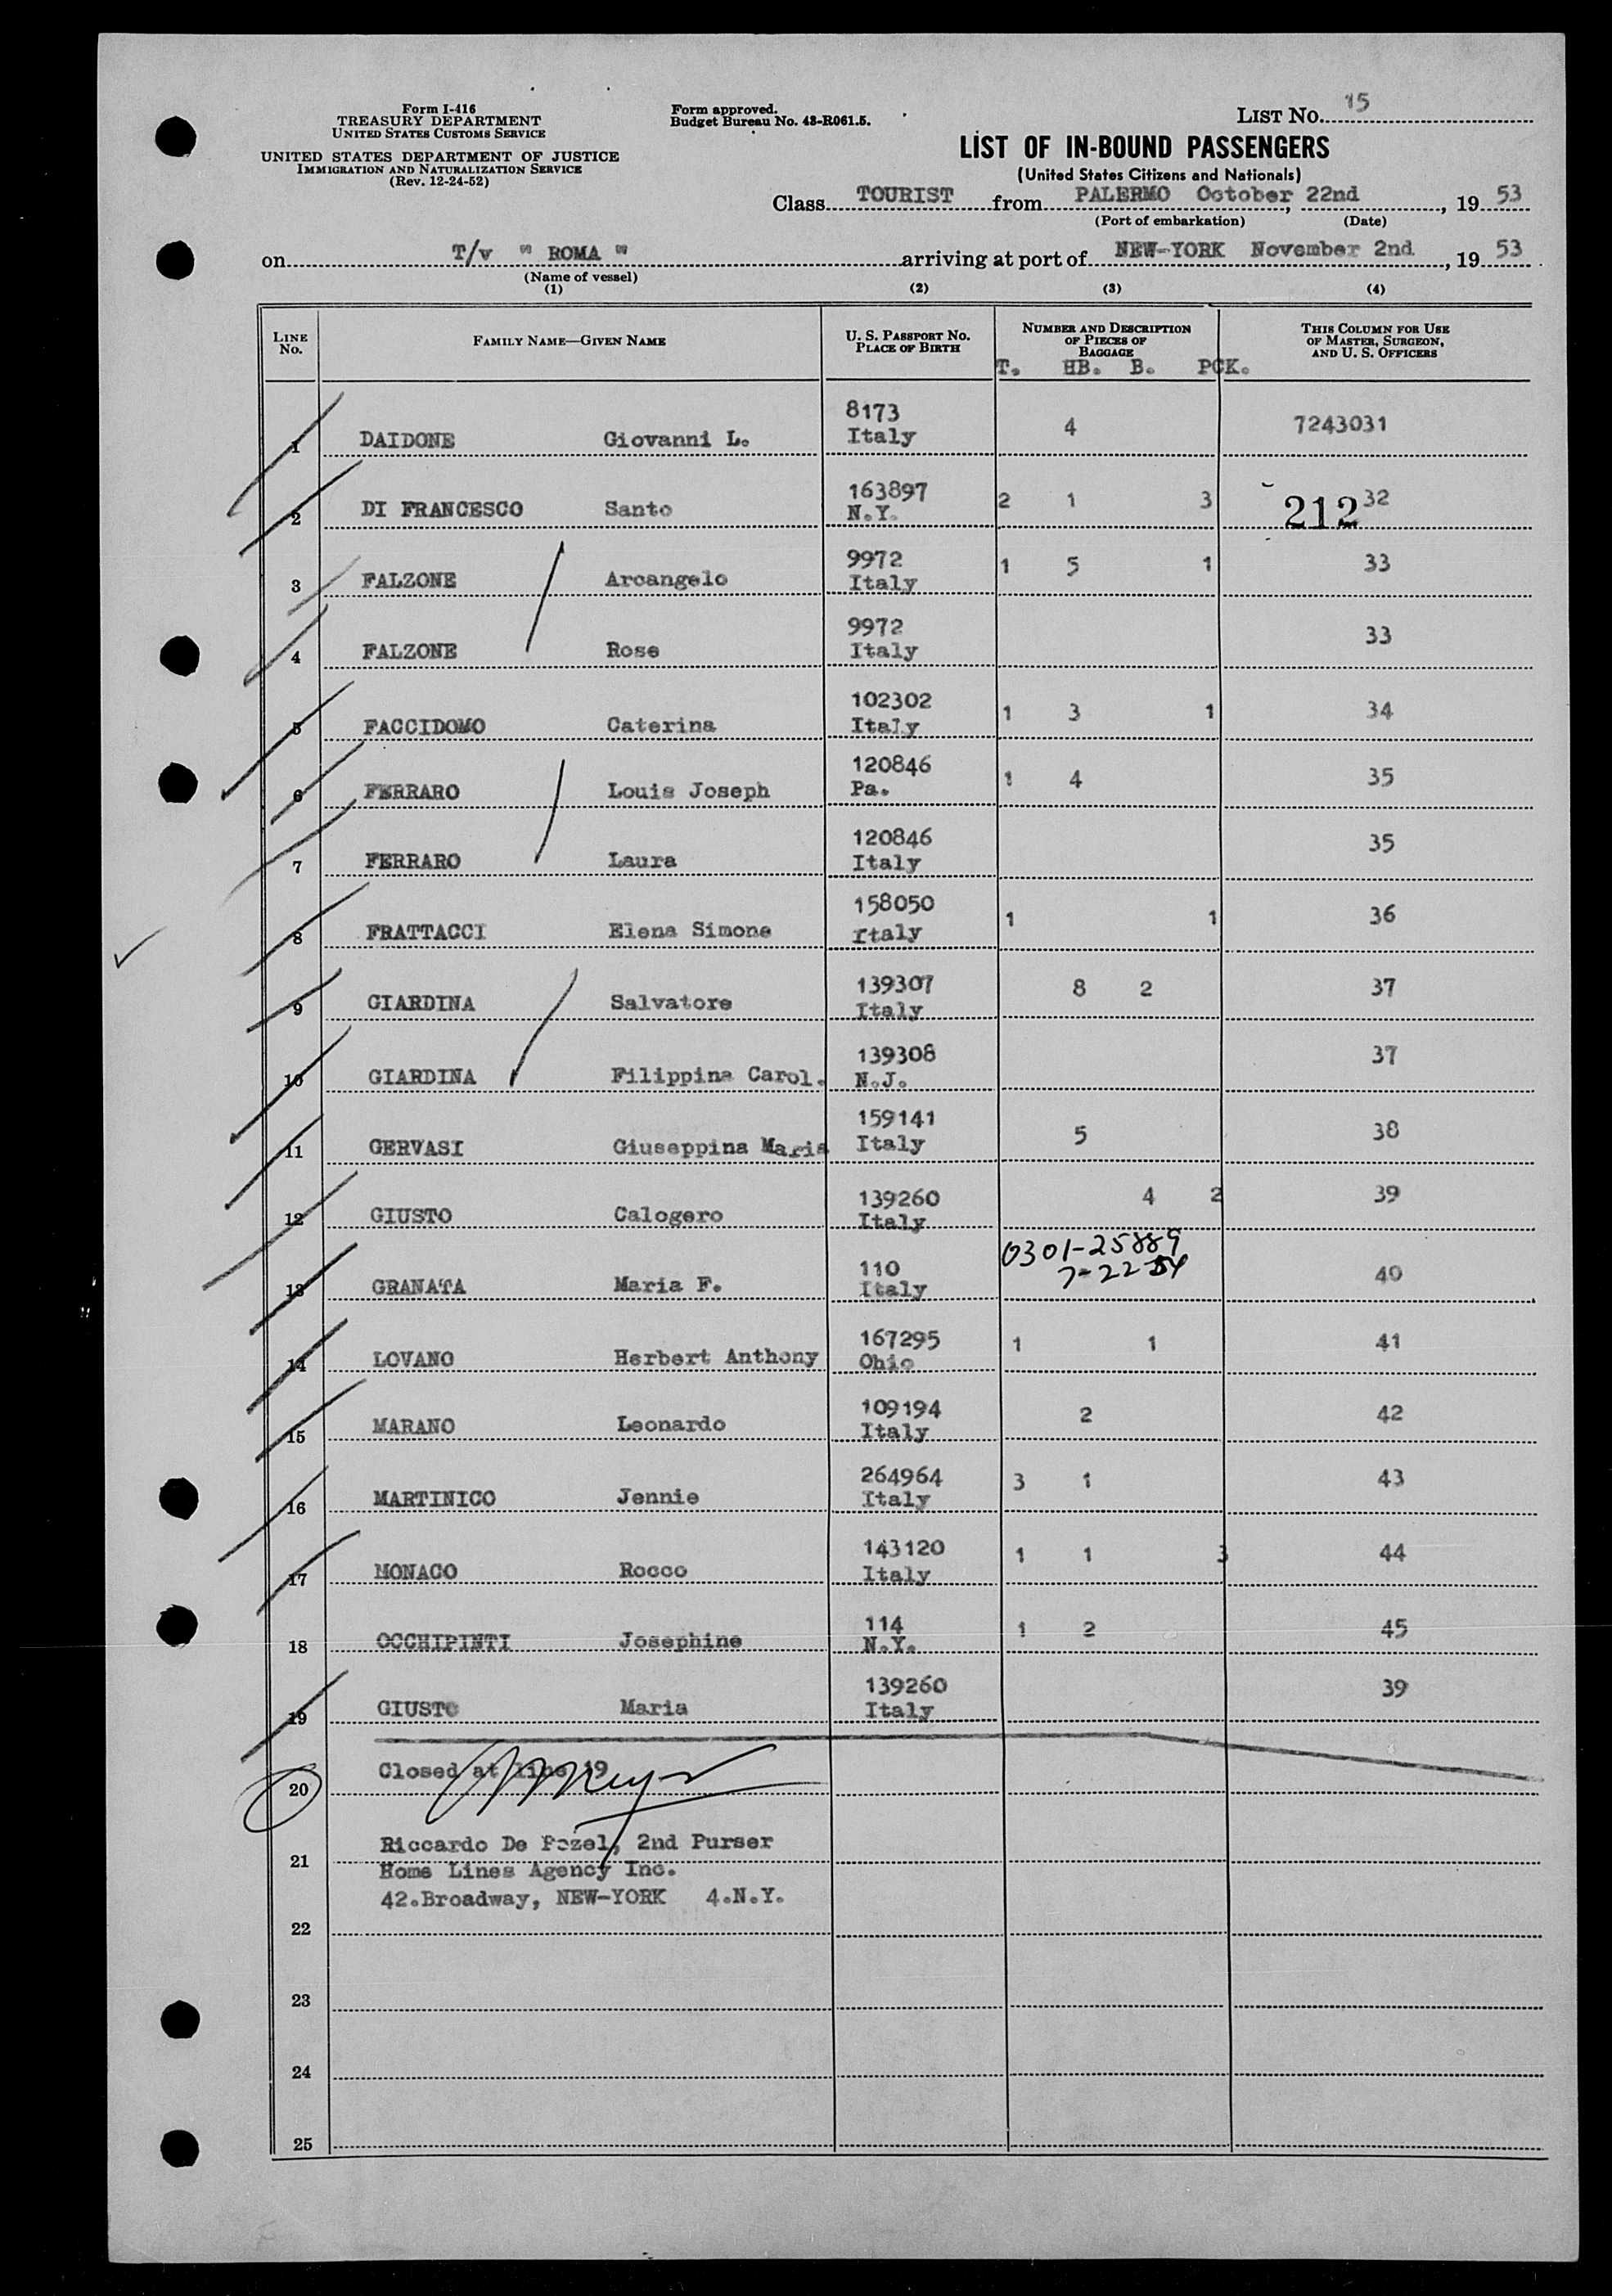 Form I-416
TREASURY DEPARTMENT
UNITED STATES CUSTOMS SERVICE
UNITED STATES DEPARTMENT OF JUSTICE
IMMIGRATION AND NATURALIZATION SERVICE
(Rev. 12-24-52)
Form approved.
Budget Bureau No. 43-R061.5.
LIST No. 15
LIST OF IN-BOUND PASSENGERS
(United States Citizens and Nationals)
Class TOURIST from PALERMO October 22nd, 19 53
(Port of embarkation) (Date)
on T/v " ROMA " arriving at port of NEW-YORK November 2nd, 19 53
(Name of vessel)
(1) (2) (3) (4)
LINE No. FAMILY NAME—GIVEN NAME U. S. PASSPORT No. PLACE OF BIRTH NUMBER AND DESCRIPTION OF PIECES OF BAGGAGE THIS COLUMN FOR USE OF MASTER, SURGEON, AND U. S. OFFICERS
T. HB. B. PCK.
1 DAIDONE Giovanni L. 8173 Italy 4 7243031
2 DI FRANCESCO Santo 163897 N.Y. 2 1 3 212 32
3 FALZONE Arcangelo 9972 Italy 1 5 1 33
4 FALZONE Rose 9972 Italy 33
5 FACCIDOMO Caterina 102302 Italy 1 3 1 34
6 FERRARO Louis Joseph 120846 Pa. 1 4 35
7 FERRARO Laura 120846 Italy 35
8 FRATTACCI Elena Simone 158050 Italy 1 1 36
9 GIARDINA Salvatore 139307 Italy 8 2 37
10 GIARDINA Filippina Carol. 139308 N.J. 37
11 GERVASI Giuseppina Maria 159141 Italy 5 38
12 GIUSTO Calogero 139260 Italy 4 2 39
0301-25889
7-22-54
13 GRANATA Maria F. 110 Italy 40
14 LOVANO Herbert Anthony 167295 Ohio 1 1 41
15 MARANO Leonardo 109194 Italy 2 42
16 MARTINICO Jennie 264964 Italy 3 1 43
17 MONACO Rocco 143120 Italy 1 1 3 44
18 OCCHIPINTI Josephine 114 N.Y. 1 2 45
19 GIUSTO Maria 139260 Italy 39
20 Closed at line 19
21 Riccardo De Pozel, 2nd Purser
Home Lines Agency Inc.
42.Broadway, NEW-YORK 4.N.Y.
22
23
24
25